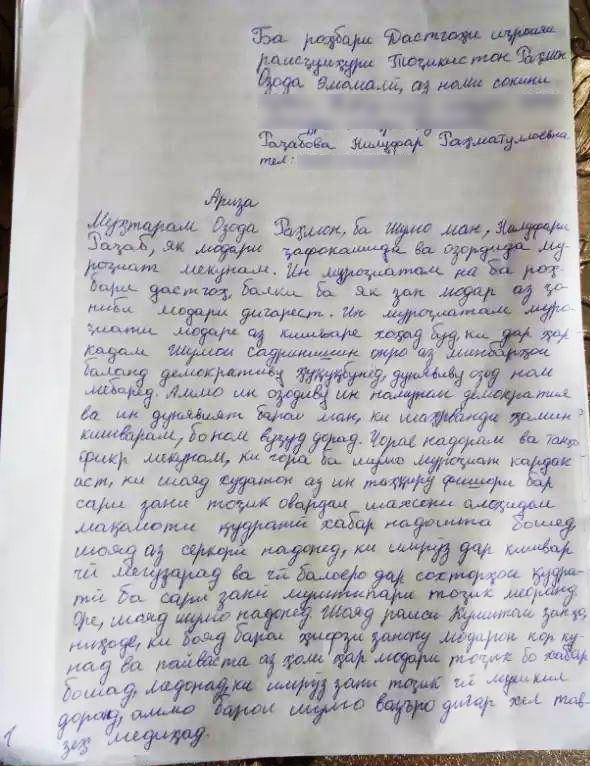 Ба роҳбари Дастгоҳи иҷроияи
раисҷумҳури Тоҷикистон Раҳмон
Озода Эмомалӣ, аз номи сокини
Раҷабова Нилуфар Раҳматуллоевна
тел:
Ариза
Муҳтарам Озода Раҳмон, ба шумо ман, Нилуфари
Раҷаб, як модари ҷафокашида ва озордида му-
роҷиат мекунам. Ин муроҷиатам на ба роҳ-
бари дастгоҳ, балки ба як зан модар аз ҷо-
ниби модари дигарест. Ин муроҷиатам муро-
ҷиати модаре аз кишваре хоҳад буд, ки дар ҳар
кадам шумои садринишин онро аз минбарҳои
баланд демокративу ҳуқуқбунёд, дунявиву озод ном
мебаред. Аммо ин озодиву ин номунаи демократия
ва ин дунявият барои ман, ки шаҳрванди ҳамин
кишварам, бо ном вуҷуд дорад. Чорае надорам ва танҳо
фикр мекунам, ки чора ба шумо муроҷиат кардан
аст, ки шояд худатон аз ин таҳқиру фишори бар
сари зани тоҷик овардаи шахсони алоҳидаи
мақомоти қудратӣ хабар надошта бошед
шояд аз серкорӣ надонед, ки имрӯз дар кишвар
чӣ мегузарад ва чӣ балоеро дар сохторҳои қудра-
тӣ ба сари зани муштипари тоҷик меоранд.
Оре, шояд шумо надонед. Шояд раиси Кумитаи занҳо,
ниҳоде, ки бояд барои ҳифзи занону модарон кор ку-
над ва пайваста аз ҳоли ҳар модари тоҷик бо хабар
бошад, надонад, ки имрӯз зани тоҷик чӣ мушкил
дорад, аммо барои шумо вазъро дигар хел тав-
зеҳ медиҳад.
1